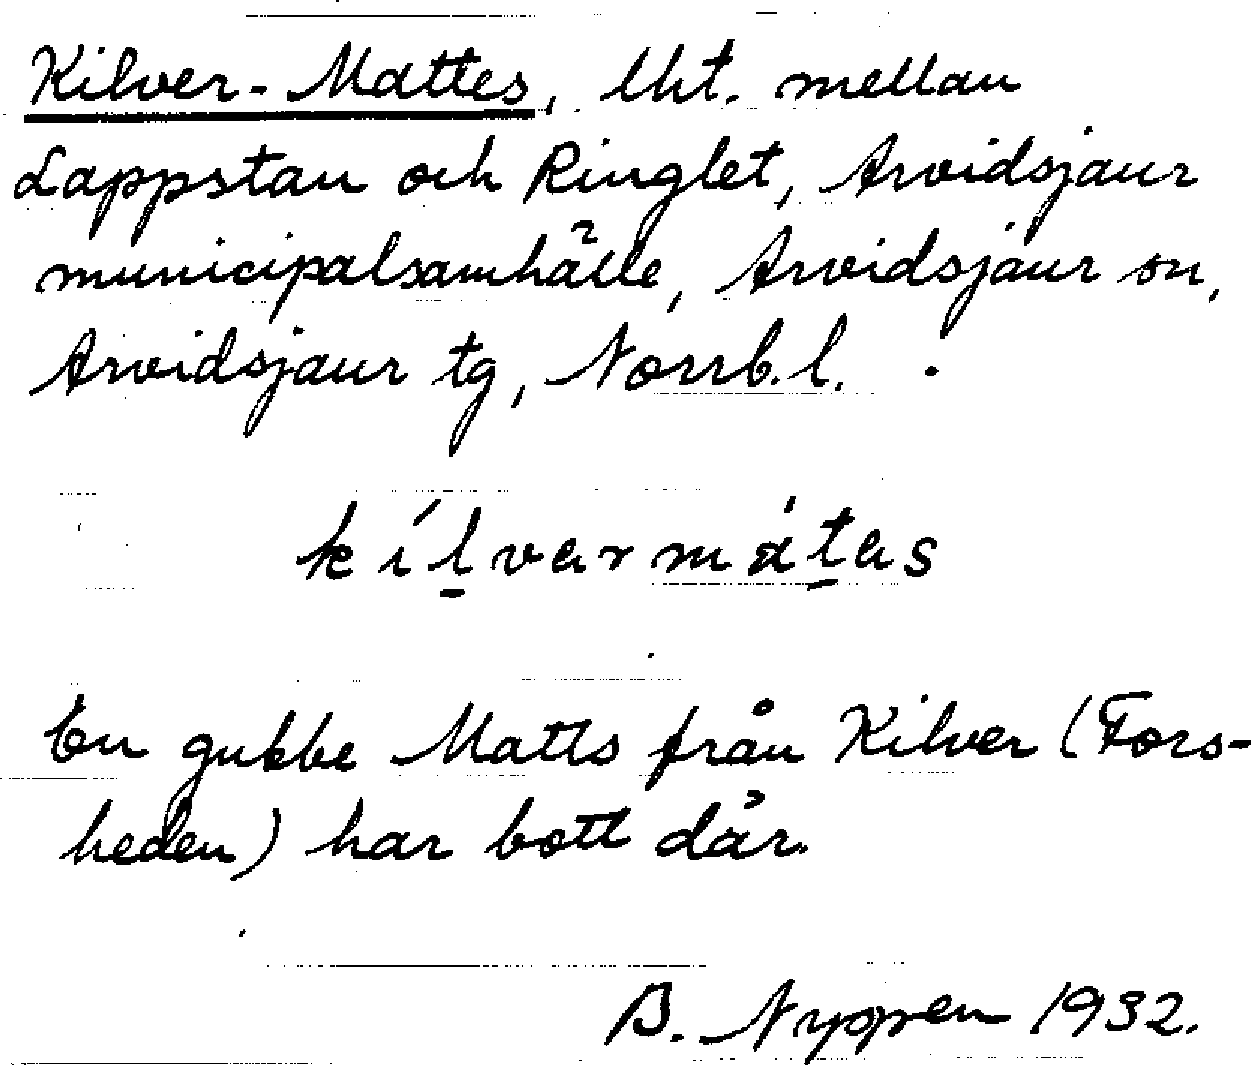 Kilver-Mattes, lht. mellan
Lappstan och Ringlet, Arvidsjaur
municipalsamhälle, Arvidsjaur sn,
Arvidsjaur tg, Norrb. l.
kílvarmátas
En gubbe Matts från Kilver (Fors-
heden) har bott där.
B. Nyppen 1932.